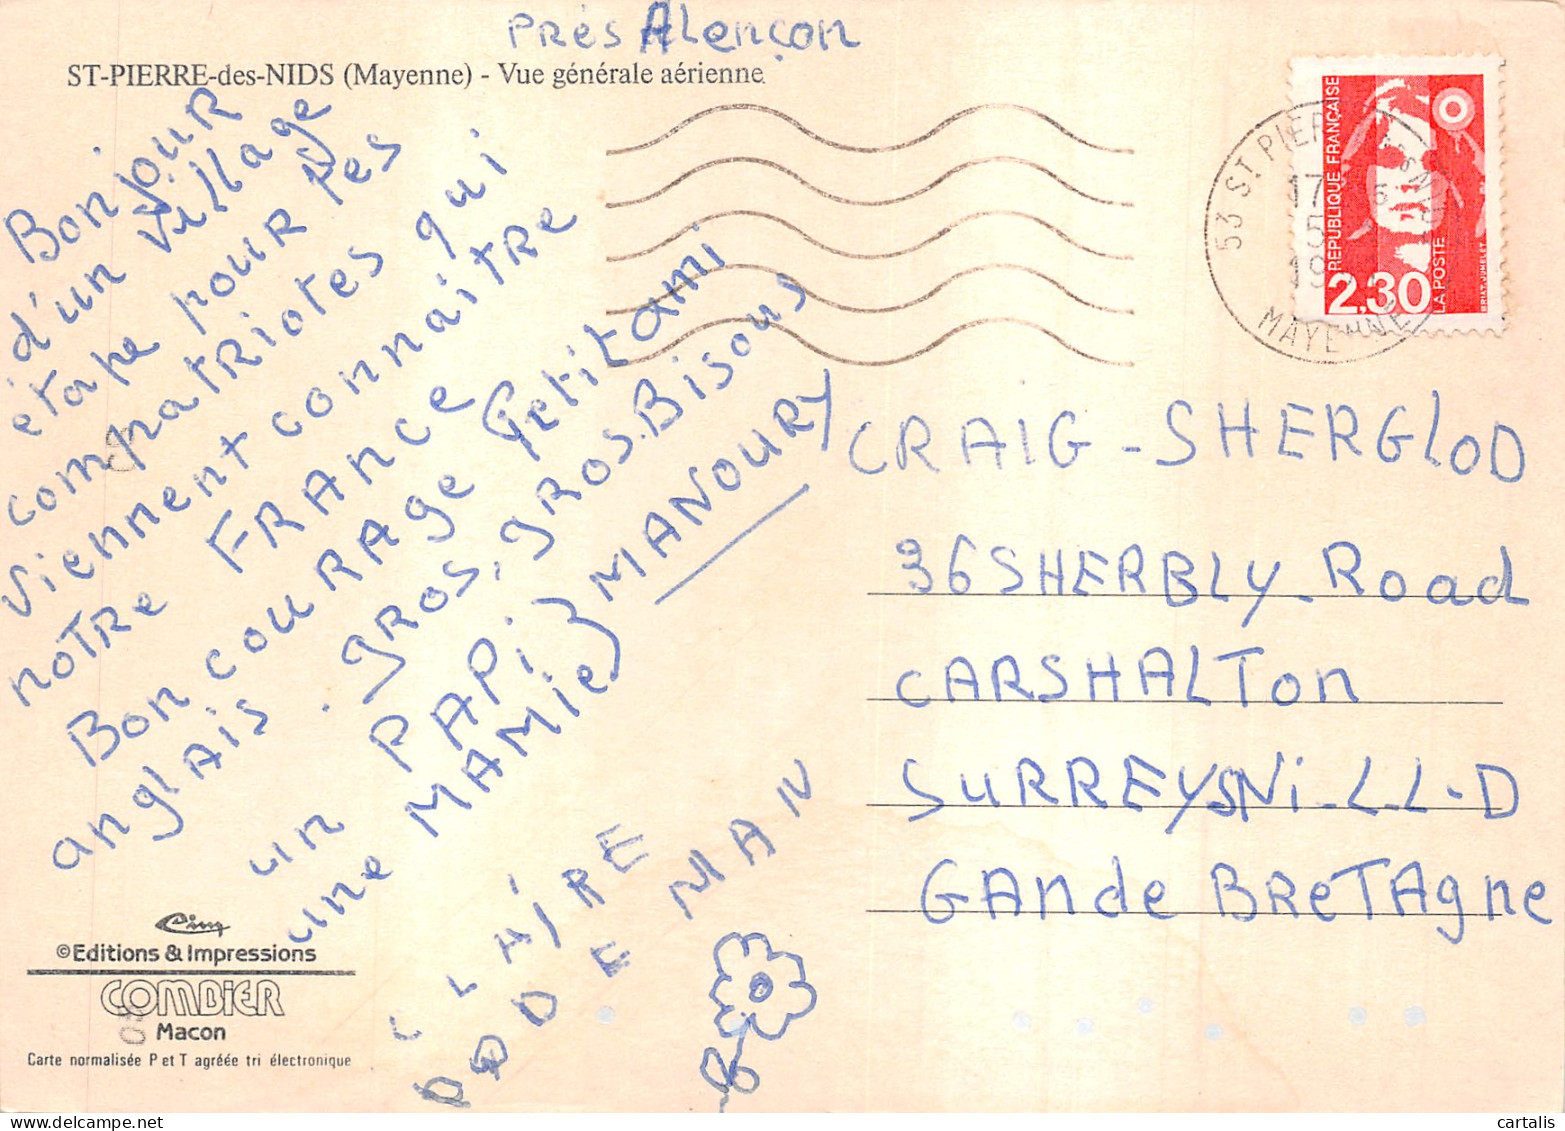 PRès ALençon
ST-PIERRE-des-NIDS (Mayenne) - Vue générale aérienne
Bonjour
d'un village
étape pour les
compatriotes qui
viennent connaitre
notre FRANCE
Bon COURAGE Petit ami
anglais. gros, gros. Bisous
un PAPi
une MAMie } MANOURY
CLAiRE
DEMAN
©Editions & Impressions
COMBiER
Macon
Carte normalisée P et T agréée tri électronique
RÉPUBLIQUE FRANÇAISE
2,30
LA POSTE
BRIAT. JUMELET
53 ST PIER
17
MAYENNE
CRAIG - SHERGLOD
36 SHERBLY-Road
CARSHALTon
SURREYSNi-L-L-D
GANDe BReTAgne
cartalis
www.delcampe.net